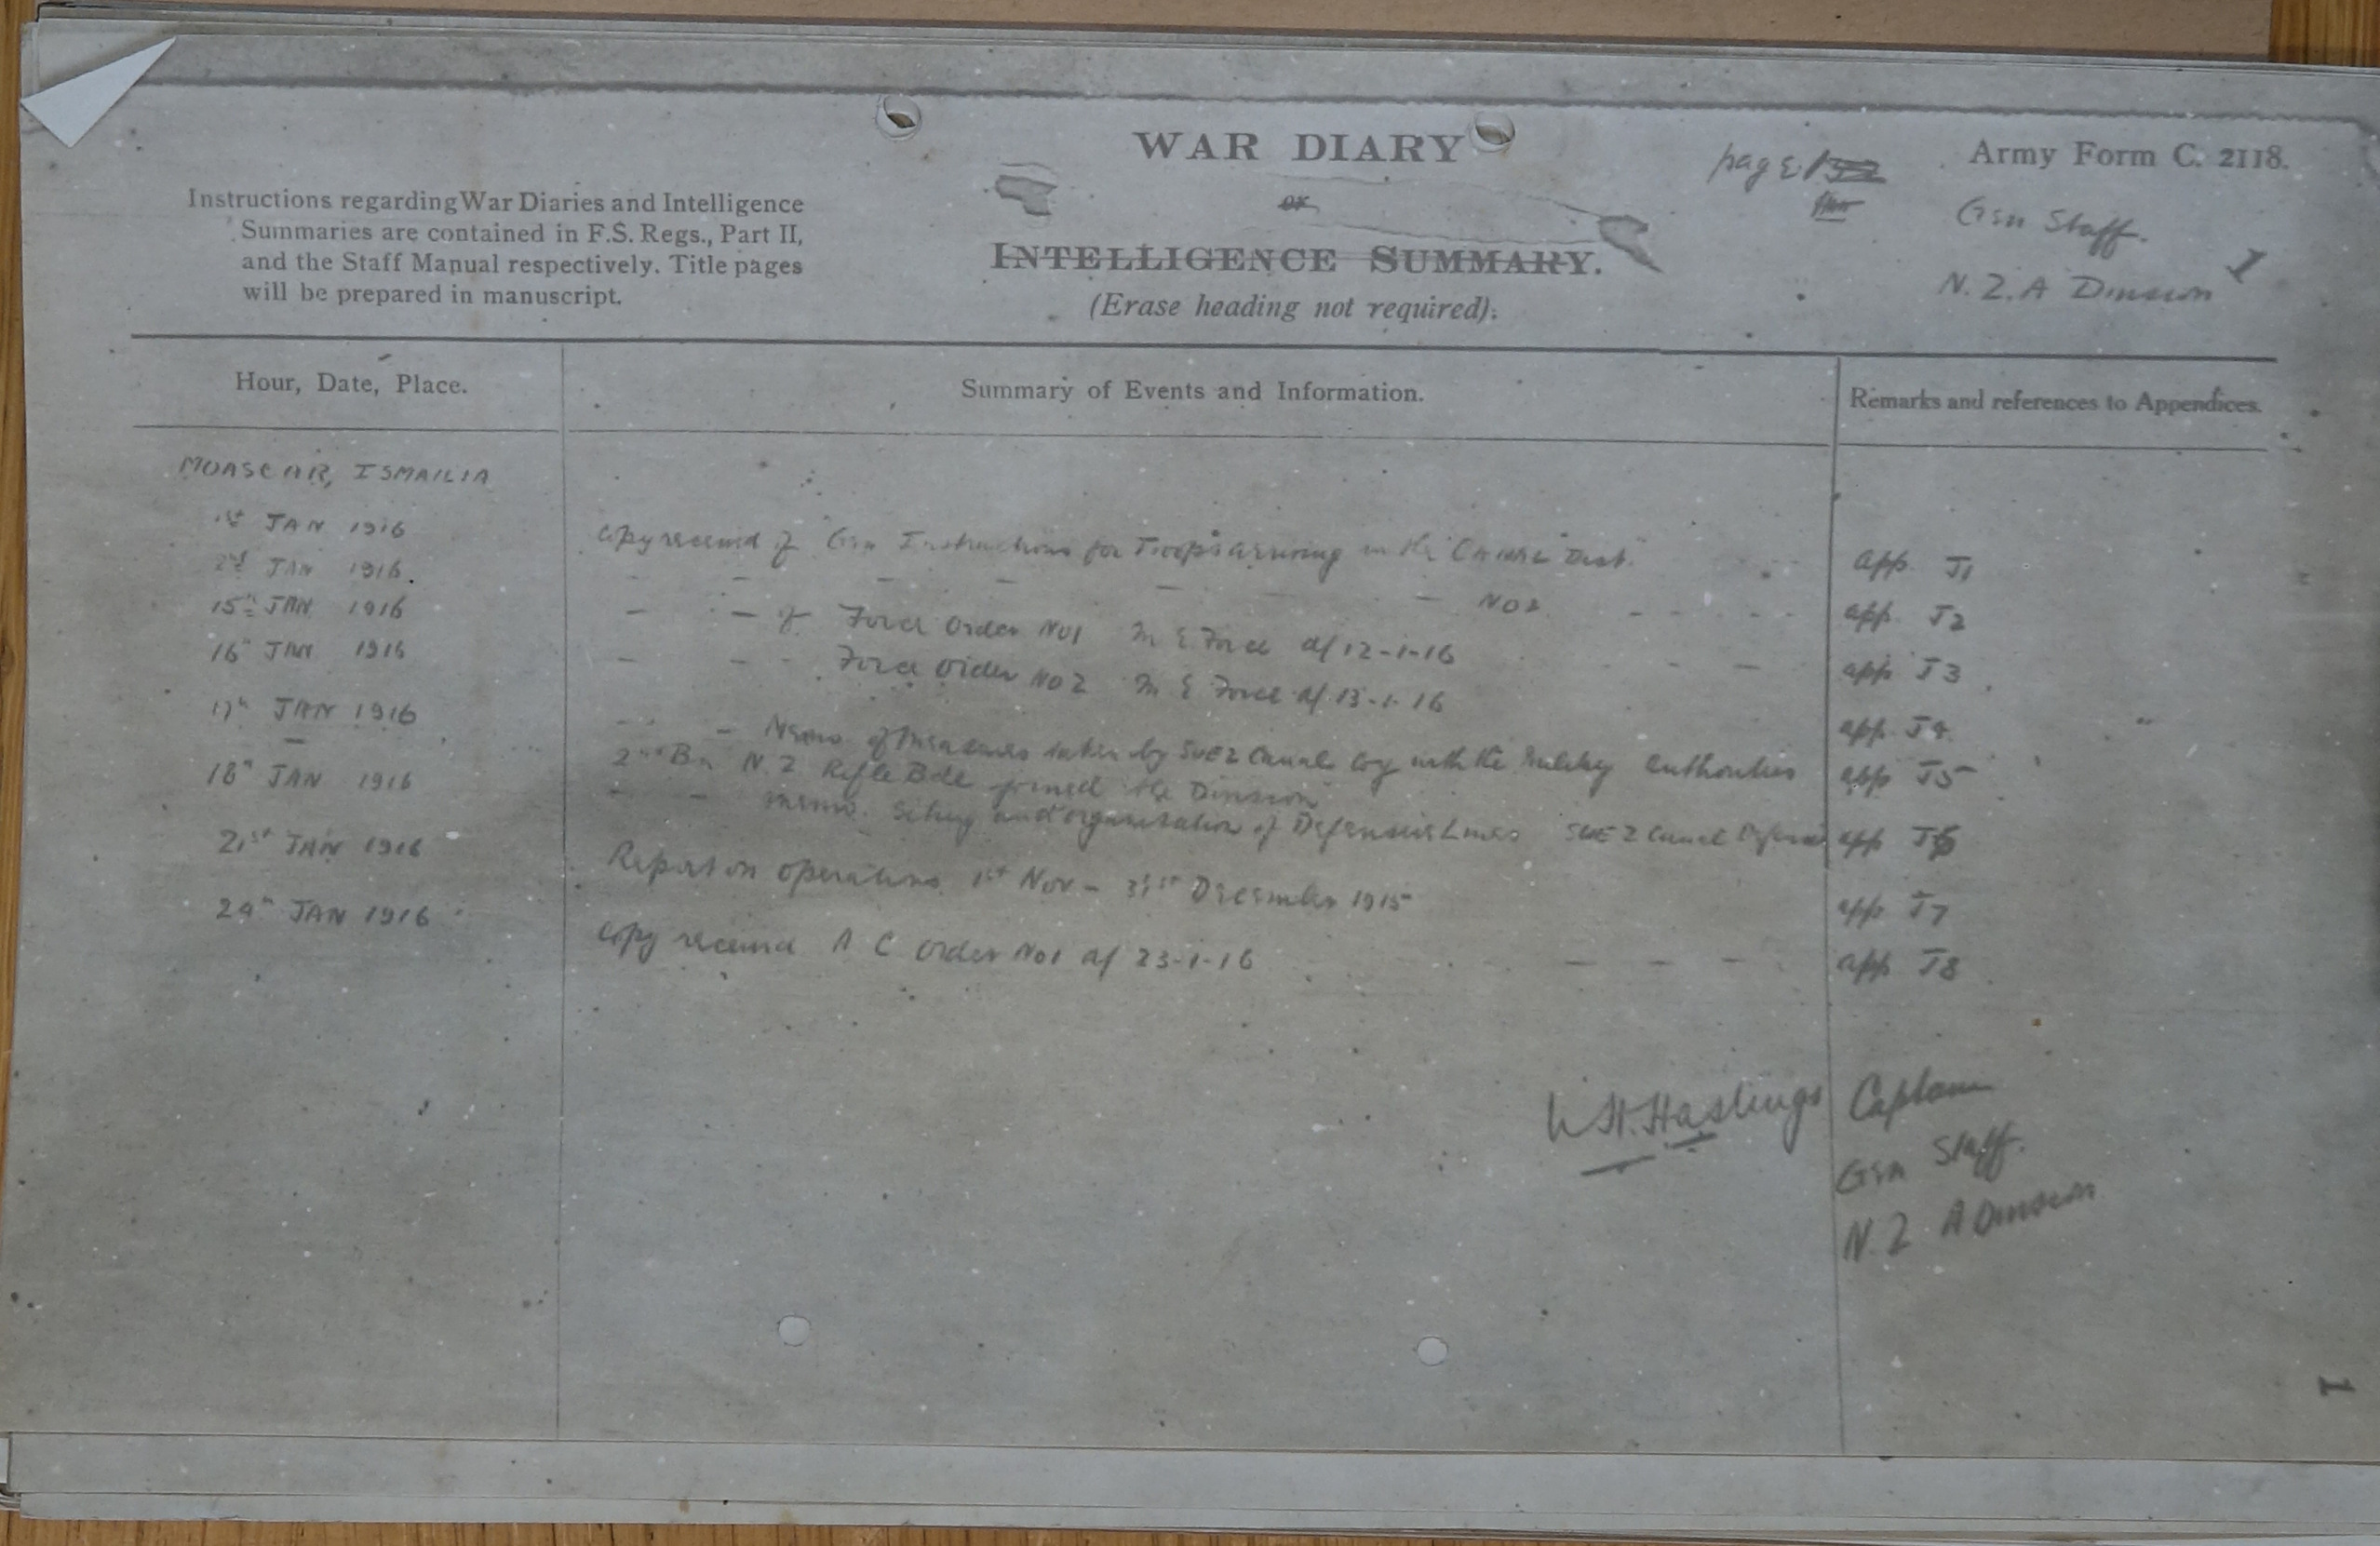 WAR DIARY
or
INTELLIGENCE SUMMARY.
(Erase heading not required).
Instructions regarding War Diaries and Intelligence
Summaries are contained in F.S. Regs., Part II,
and the Staff Manual respectively. Title pages
will be prepared in manuscript.
page 1
Army Form C. 2118.
Gen Staff.
N.Z.A Division
1
Hour, Date, Place.
Summary of Events and Information.
Remarks and references to Appendices.
MOASCAR, ISMAILIA
1st JAN 1916 Copy received of "Gen Instructions for Troops arriving in the Canal Dist." app. J1
2nd JAN 1916. - - - - - - No 2. - - - - - app. J2
15th JAN 1916 - - of Force Order No 1 M E Force d/ 12-1-16 - - - app J3
16th JAN 1916 - - - Force Order No 2 M E Force d/ 13-1-16 app J4
17th JAN 1916 - - Memo of Measures taken by SUEZ Canal Coy with the Military Authorities app J5
2nd Bn N.Z Rifle Bde joined the Division
18th JAN 1916 - - memo. Siting and organisation of Defensive Lines SUEZ Canal Defences app J6
21st JAN 1916 Report on operations 1st Nov - 31st December 1915 app J7
24th JAN 1916 Copy received A C Order No 1 d/ 23-1-16 - - - app J8
W.H.Hastings Captain
Gen Staff.
N.Z A Division
1